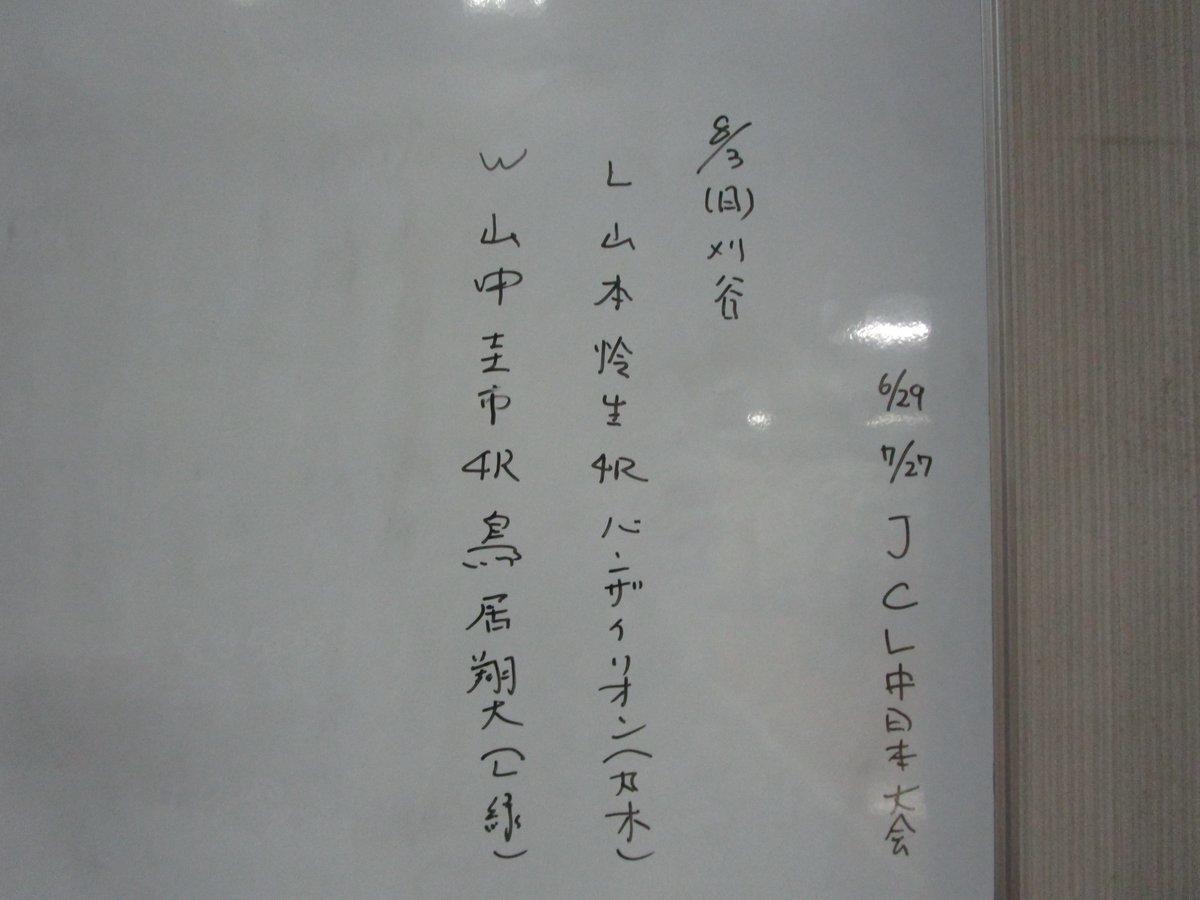 6/29 7/27 JCL中日本大会
8/3(日)刈谷
L 山本怜生 4R バンザイリオン(乃木)
W 山中圭市 4R 鳥居翔大(L緑)